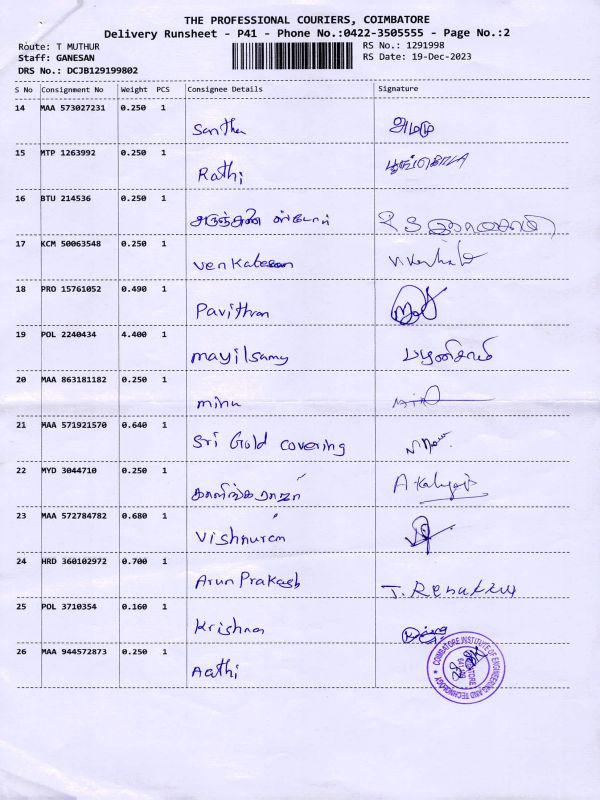 THE PROFESSIONAL COURIERS, COIMBATORE
Delivery Runsheet - P41 - Phone No.:0422-3505555 - Page No.:2
Route: T MUTHUR RS No.: 1291998
Staff: GANESAN RS Date: 19-Dec-2023
DRS No.: DCJB129199802
S No Consignment No Weight PCS Consignee Details Signature
14 MAA 573027231 0.250 1
Santha அமுமு
15 MTP 1263992 0.250 1
Rathi பூங்கொடி
16 BTU 214536 0.250 1
ஸ்டோர்
17 KCM 50063548 0.250 1
Venkatesan
18 PRO 15761052 0.490 1
Pavithran
19 POL 2240434 4.400 1
mayilsamy
20 MAA 863181182 0.250 1
minu
21 MAA 571921570 0.640 1
Sri Gold covering
22 MYD 3044710 0.250 1
காளிங்கராஜா
23 MAA 572784782 0.680 1
Vishnuram
24 HRD 360102972 0.700 1
Arun Prakash
25 POL 3710354 0.160 1
Krishna
26 MAA 944572873 0.250 1
Aathi
COIMBATORE INSTITUTE OF ENGINEERING AND TECHNOLOGY